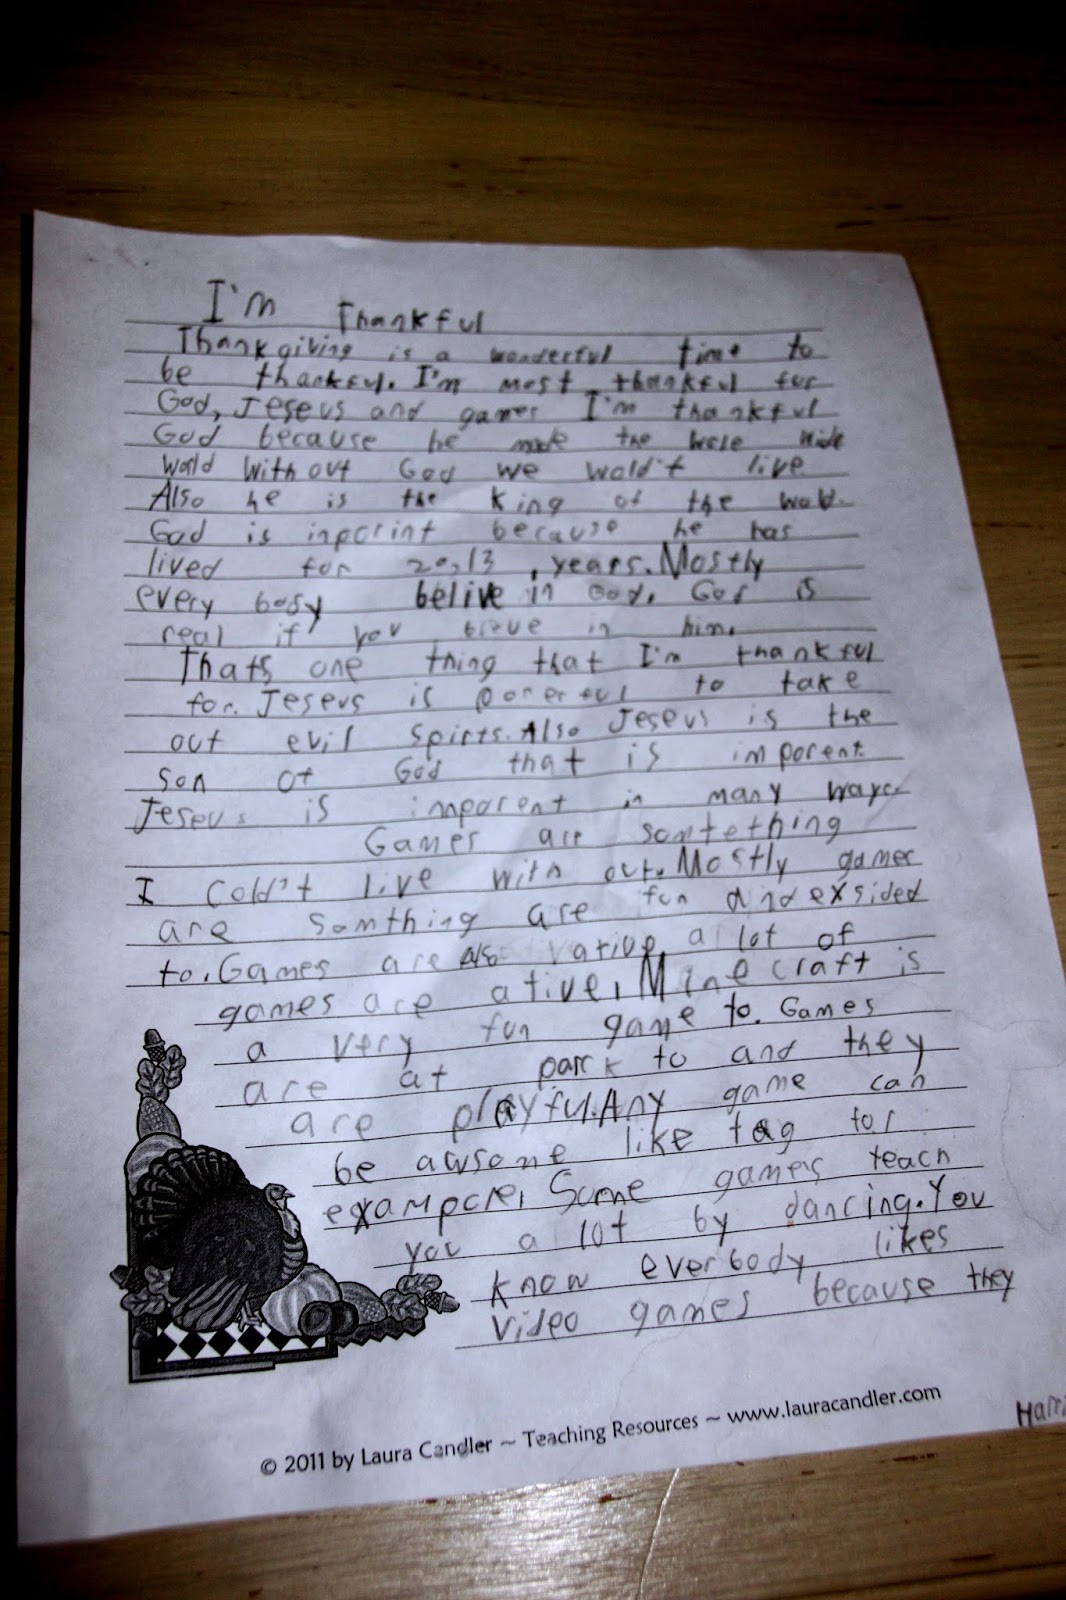 I'm Thankful
Thanksgiving is a wonderful time to
be thankful. I'm most thankful for
God, Jeseus and games I'm thankful
God because he made the wole wide
world with out God we wold't live
Also he is the king of the wold.
God is inporint because he has
lived for 20,13 , years. Mostly
every body belive in God. God is
real if you bleve in him.
Thats one thing that I'm thankful
for. Jeseus is porerful to take
out evil spirts. Also Jeseus is the
son of God that is imporent.
Jeseus is imporent in many ways.
Games are somtething
I cold't live with out. Mostly games
are somthing are fun and exsided
to. Games are also varius. a lot of
games are ative, Minecraft is
a very fun game to. Games
are at park to and they
are playful. Any game can
be awsome like tag for
exampcle, Some games teach
you a lot by dancing. You
know everbody likes
video games because they
© 2011 by Laura Candler ~ Teaching Resources ~ www.lauracandler.com